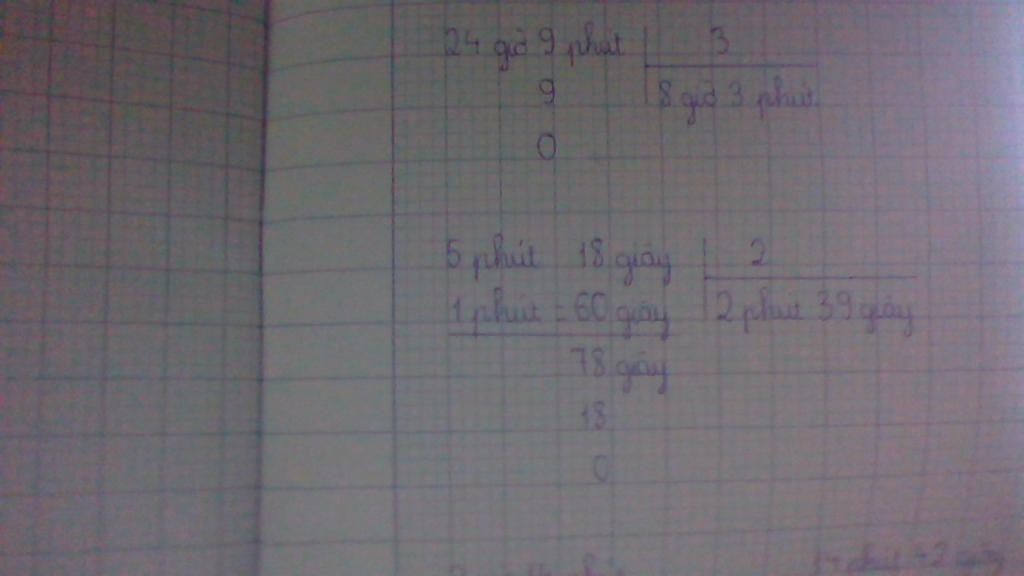 24 giờ 9 phút 3
9 8 giờ 3 phút
0
5 phút 18 giây 2
1 phút = 60 giây 2 phút 39 giây
78 giây
18
0